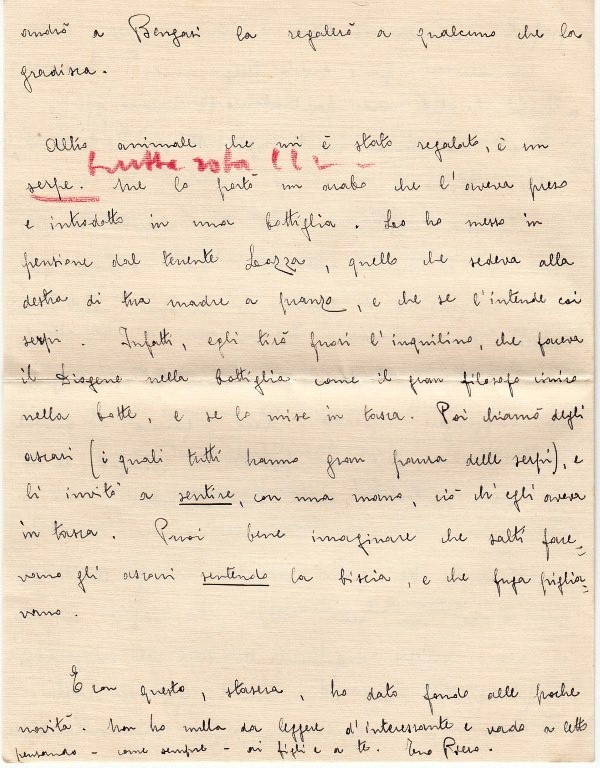 andrò a Bengasi la regalerò a qualcuno che la
gradisca.
Altro animale che mi è stato regalato, è un
tutta rota !!
serpe. Me lo portò un arabo che l'aveva preso
e introdotto in una bottiglia. Lo ho messo in
pensione dal tenente Lozza, quello che sedeva alla
destra di tua madre a pranzo, e che se l'intende coi
serpi. Infatti, egli tirò fuori l'inquilino, che faceva
il Diogene nella bottiglia come il gran filosofo cinico
nella botte, e se lo mise in tasca. Poi chiamò degli
ascari (i quali tutti hanno gran paura delle serpi), e
li invitò a sentire, con una mano, ciò ch'egli aveva
in tasca. Puoi bene imaginare che salti face=
vano gli ascari sentendo la biscia, e che fuga piglia=
vano.
E con questo, stasera, ho dato fondo alle poche
novità. Non ho nulla da leggere d'interessante e vado a letto
pensando - come sempre - ai figli e a te. Tuo Piero.